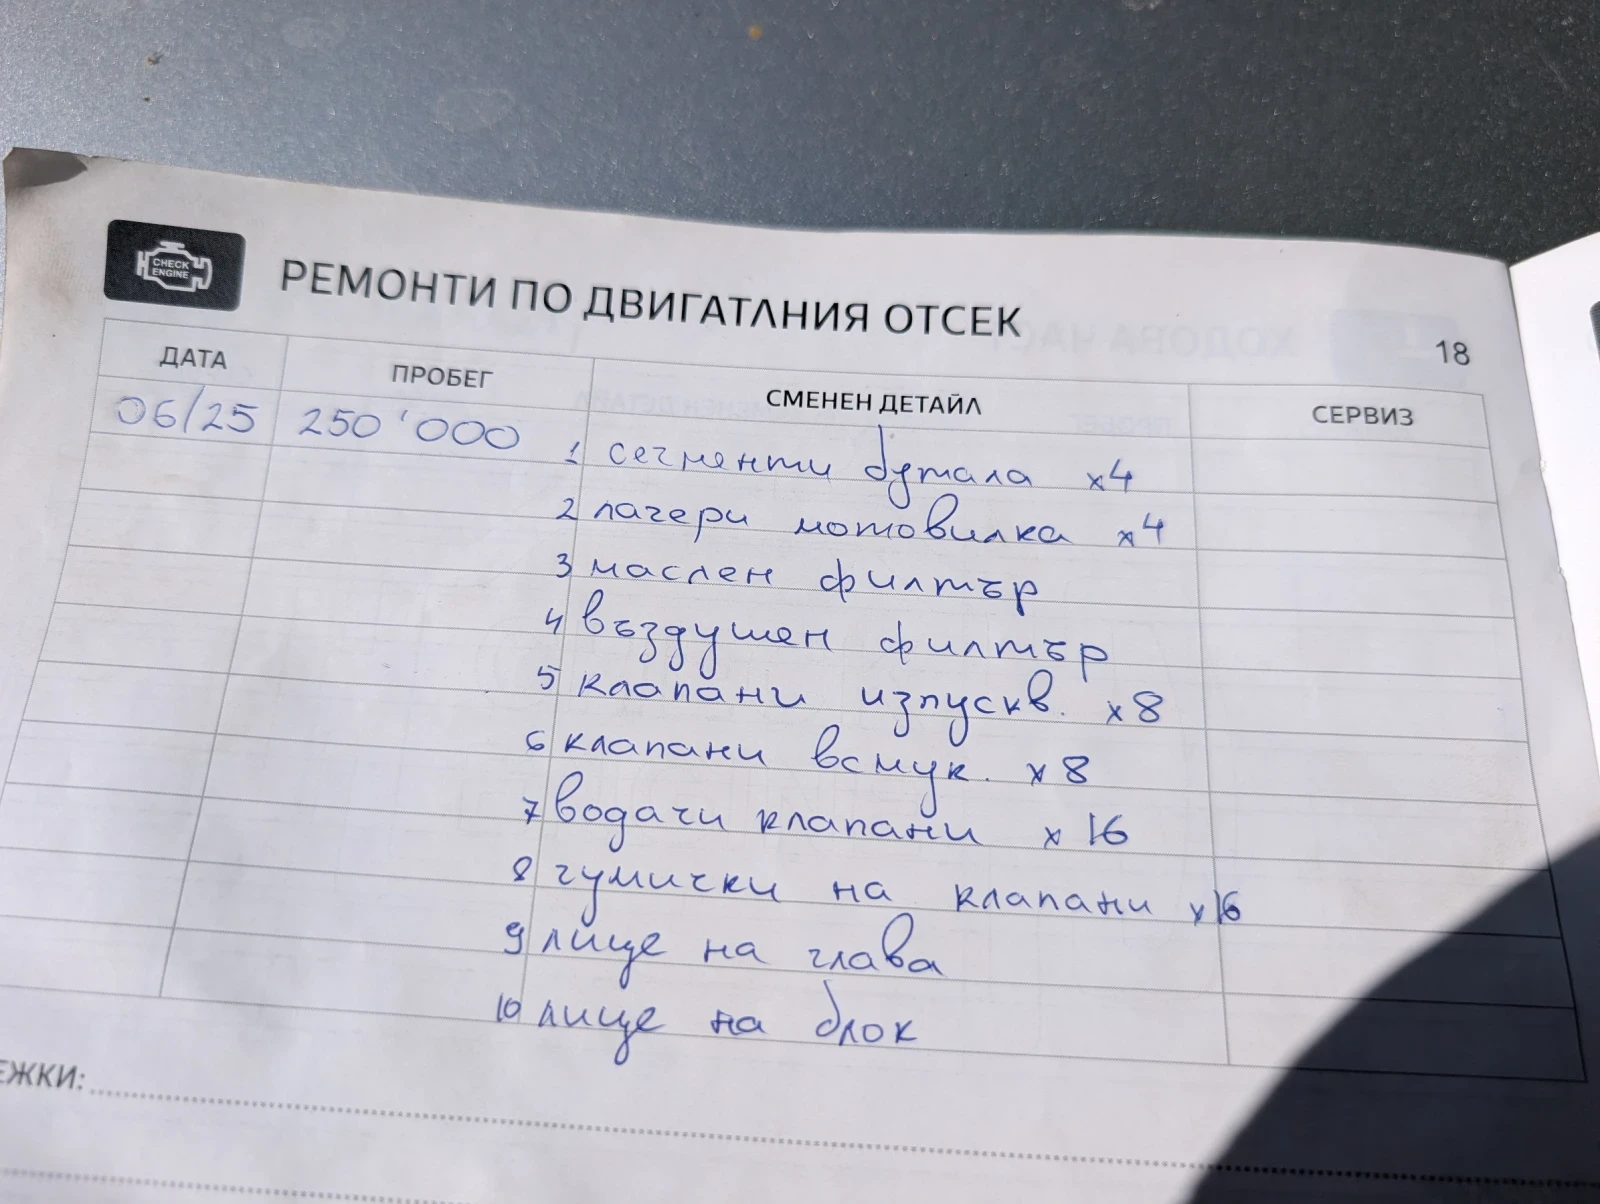 CHECK
ENGINE
РЕМОНТИ ПО ДВИГАТЛНИЯ ОТСЕК
18
ДАТА ПРОБЕГ СМЕНЕН ДЕТАЙЛ СЕРВИЗ
06/25 250'000 1 сегменти бутала x4
2 лагери мотовилка x4
3 маслен филтър
4 въздушен филтър
5 клапани изпускв. x8
6 клапани всмук. x8
7 водачи клапани x16
8 гумички на клапани x16
9 лице на глава
10 лице на блок
ЕЖКИ: